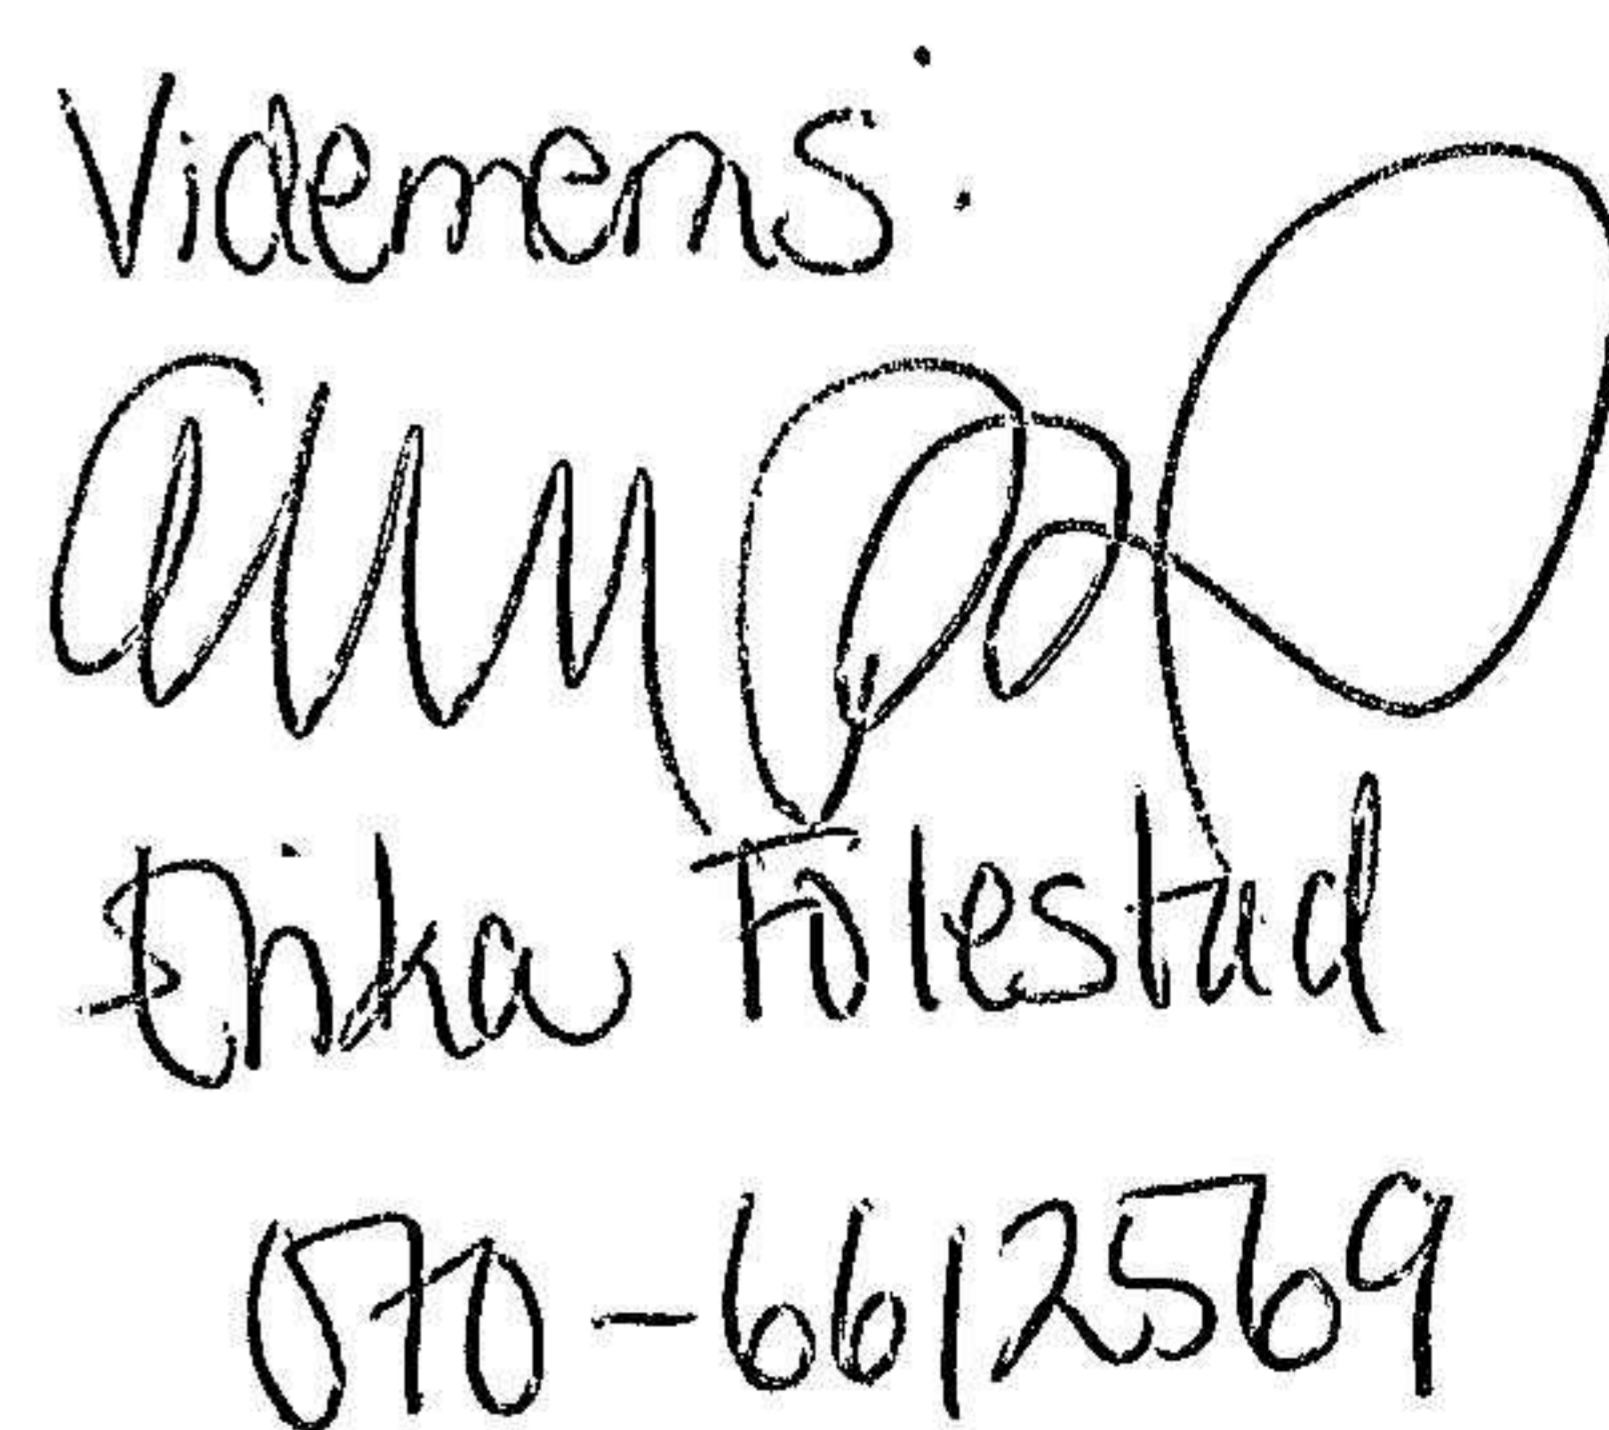 Videmems:
Erika Folestad
070-6612569